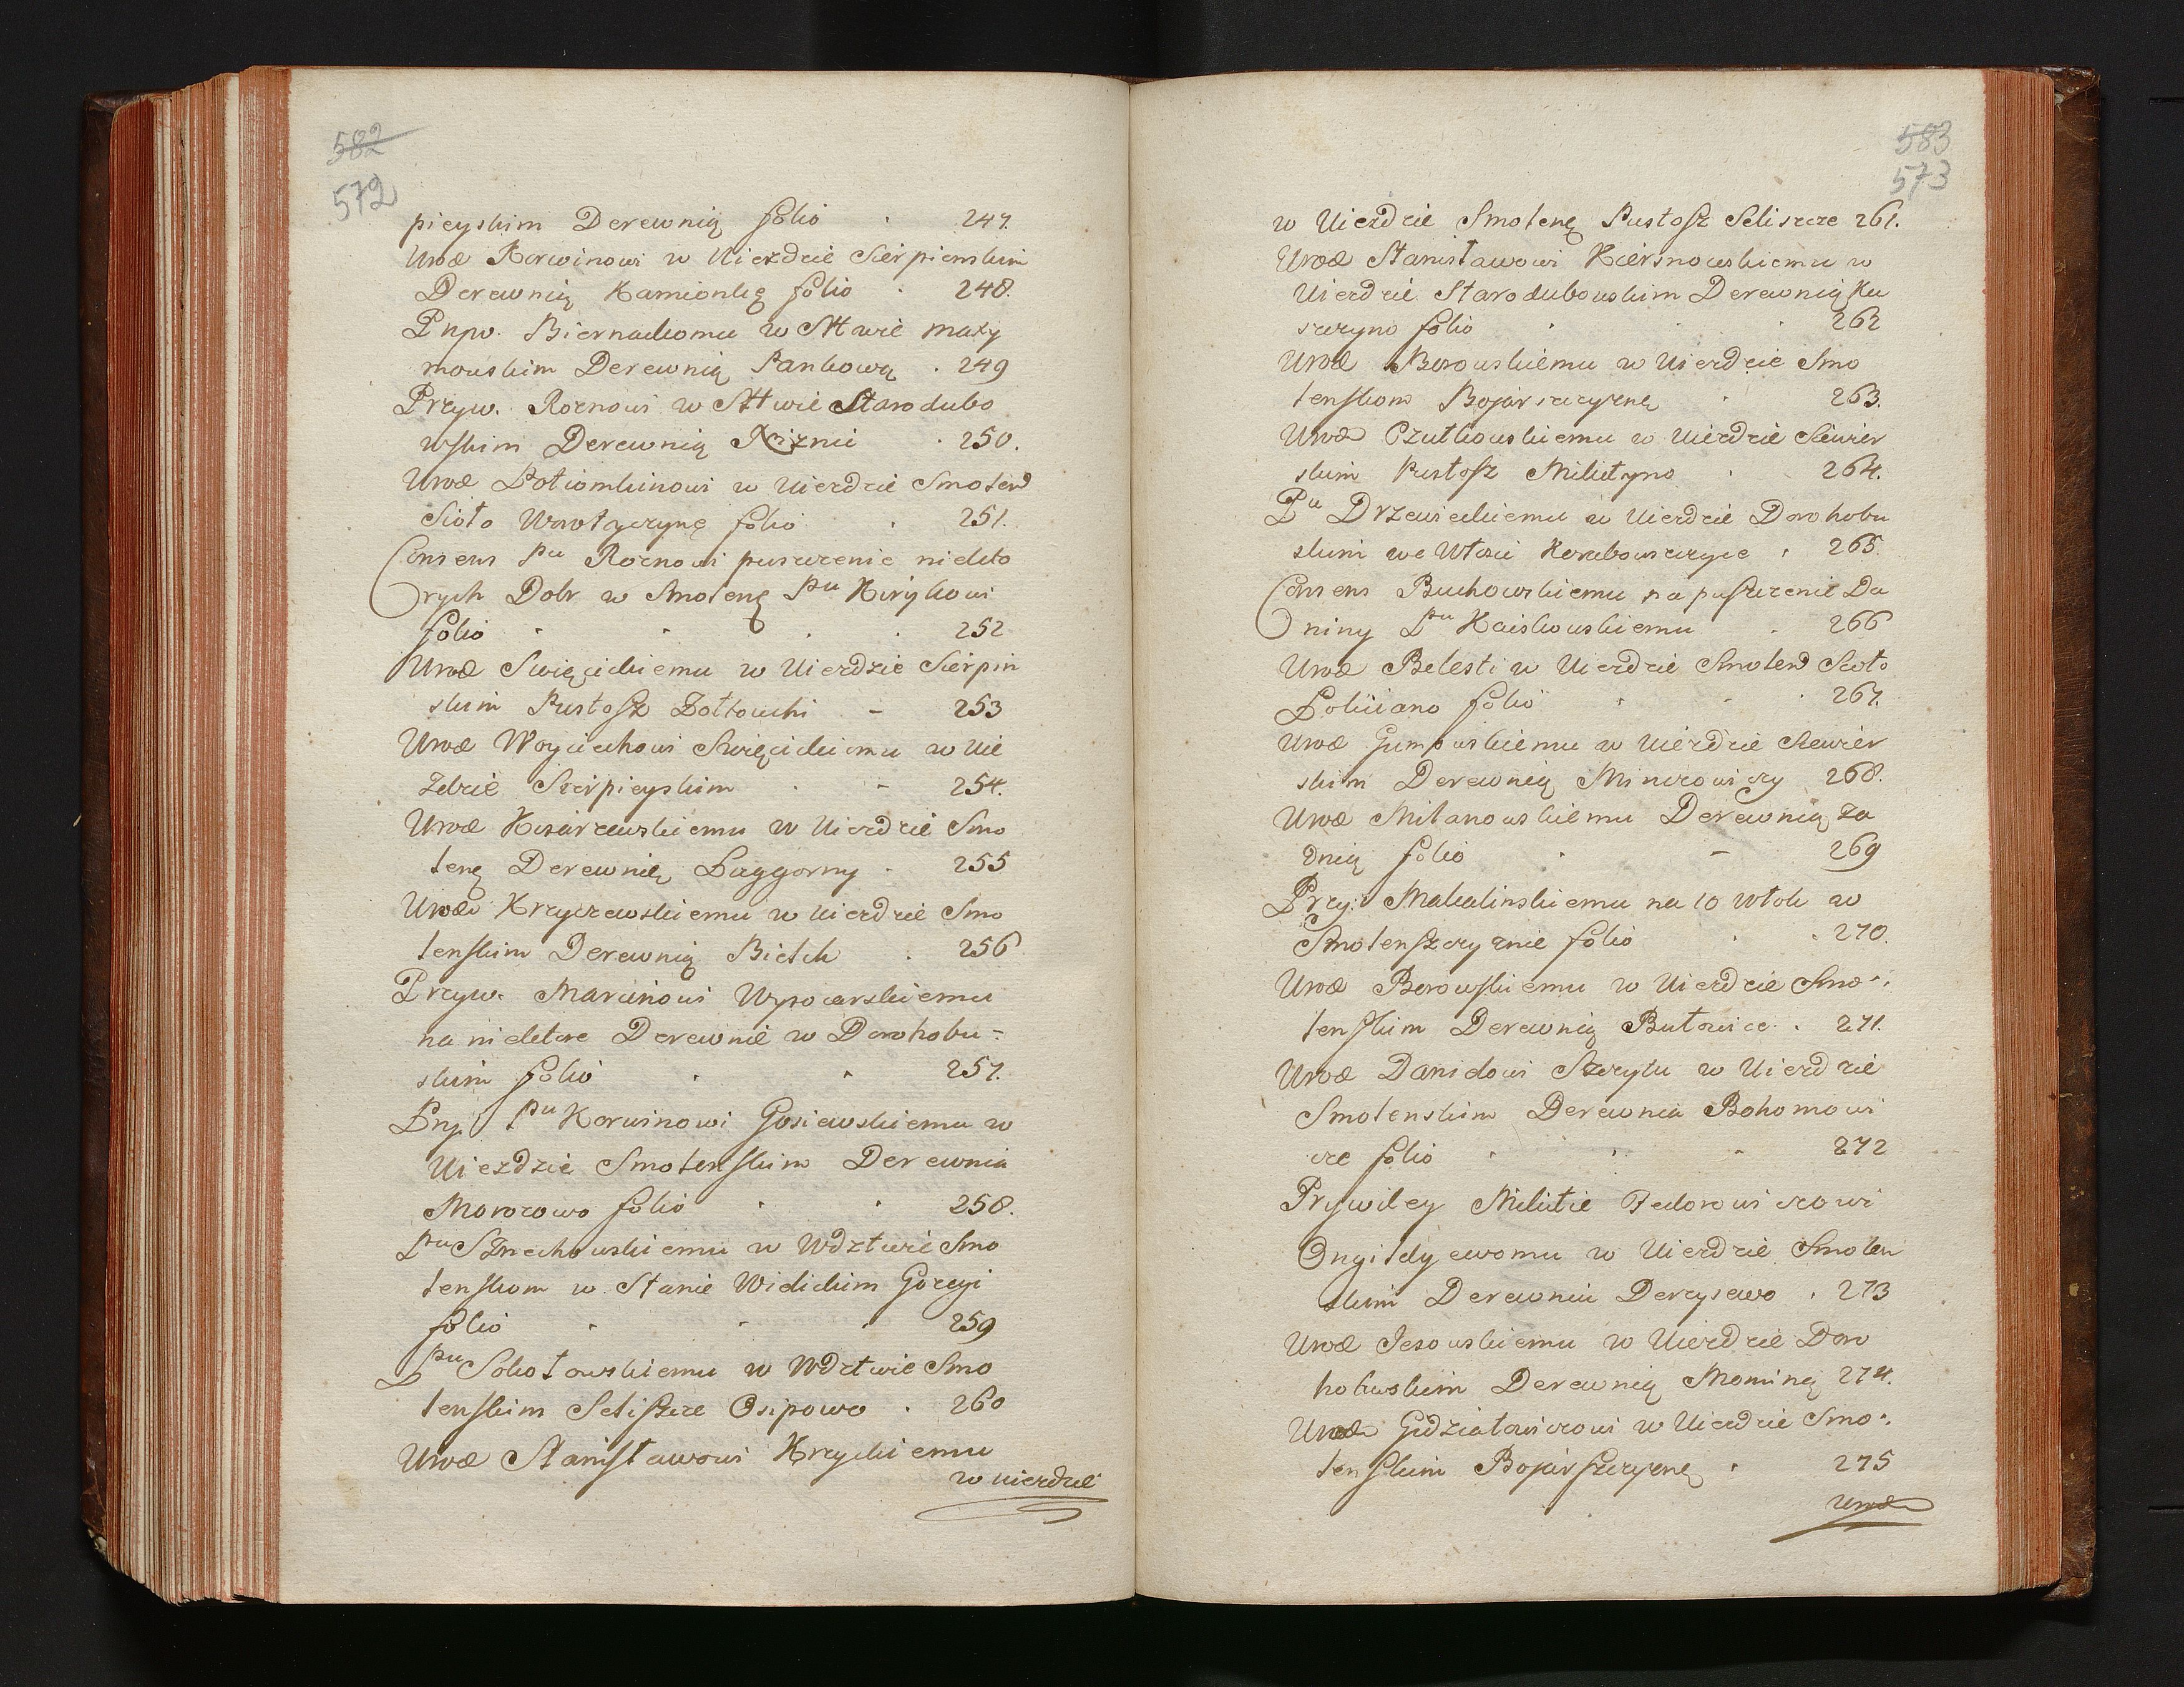 582
572
pieyskim Derewnią folio . 247.
Uwæ Korwinowi w Uiezdzie Sierpienskim
Derewnią Kamionkę folio . 248.
Pnpw. Biernackomu w Sttwie maxy
mowskim Derewnią Pankową . 249
Przyw. Rożnowi w Sttwie Starodubo
wskim Derewnią . 250.
Uwæ Potiomkinowi w Uiezdzie Smoleń
Sioło Worotyczynę folio . 251.
Consens Pu Rożnowi puszczenie niekto
rych Dobr w Smolenę Pu Kirykowi
folio . . . . 252
Uwæ Swięcickiemu w Uiezdzie Sierpin
skim Pustosz Zołtouchi – 253
Uwæ Woyciechowi Swięcickiemu w Uie
zdzie Sierpieyskim . – 254.
Uwæ Kosarzewskiemu w Uiezdzie Smo
lenę Derewnię Baggorny . 255
Uwæ Krzyczewskiemu w Uiezdzie Smo
lenskim Derewnią Bielik . 256
Przyw. Marcinowi Wysocarskiemu
na niektore Derewnie w Dorohobu-
skim folio . . 257.
Pny. Pu Korwinowi Gosiewskiemu w
Uiezdzie Smolenskim Derewnia
Morozowo folio . . 258.
Pu Strzechowskiemu w Wdztwie Smo
lenskom w Stanie Widickim Gorcyi
folio . . . 259
Pu Sokołowskiemu w Wdztwie Smo
lenskim Seliszcze Osipowo . 260
Uwæ Stanisławowi Krzyckiemu
w uiezdzie
583
573
w Uiezdzie Smolenę Pustosz Seliszcze 261.
Uwæ Stanisławowi Kiersnowskiemu w
Uiezdzie Starodubowskim Derewnią Ku
szczyno folio . . . 262
Uwæ Borowskiemu w Uiezdzie Smo
lenskom Bojarszczyznę . 263.
Uwæ Czutkowskiemu w Uiezdzie Siewier
skim Pustosz Milutyno . 264.
Pu Drzewieckiemu w Uiezdzie Dorohobu
skim we Włosci Korabowszczyce . 265.
Consens Buchowskiemu na puszczenie Da
niny Pu Kaiskowskiemu . 266
Uwæ Belesti w Uiezdzie Smoleń Sioło
Poliiano folio . – . 267.
Uwæ Gumowskiemu w Uiezdzie Siewier
skim Derewnią Minczowiczy 268.
Uwæ Milanowskiemu Derewnią Za
dnią folio . – 269
Przy: Makalinskiemu na 10 Włok w
Smolenszczyznie folio . . 270.
Uwæ Borowskiemu w Uiezdzie Smo-
lenskim Derewnią Butowice . 271.
Uwæ Daniłowi Szczytu w Uiezdzie
Smolenskim Derewnia Bohomowi
cze folio . . – 272
Prywiley Milutie Fedorowiczowi
Ongildyewomu w Uiezdzie Smolen
skim Derewniu Derzysewo . 273
Uwæ Jesowskiemu w Uiezdzie Doro
hobuskim Derewnią Mominę 274.
Uwæ Gidziałowiczowi w Uiezdzie Smo-
lenskim Bojarszczyznę . 275
Uwæ